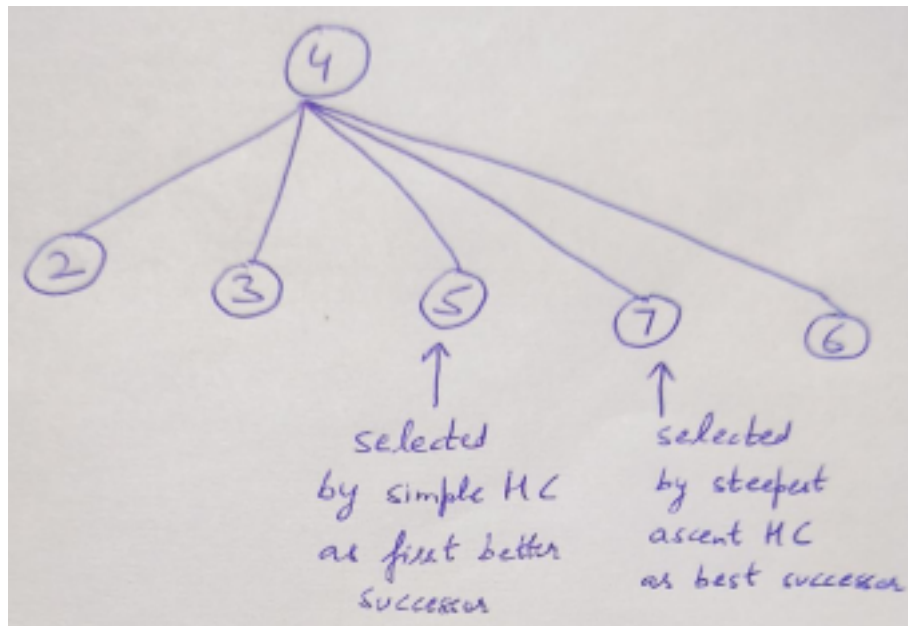 4
2
3
5
7
6
selected
by simple HC
as first better
successor
selected
by steepest
ascent HC
as best successor